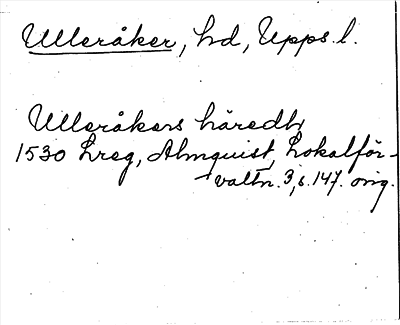 Ulleråker, hd, Upps. l.
Ulleråkers häredh
1530 Lreg, Almquist, Lokalför-
valtn. 3, s. 147. orig.